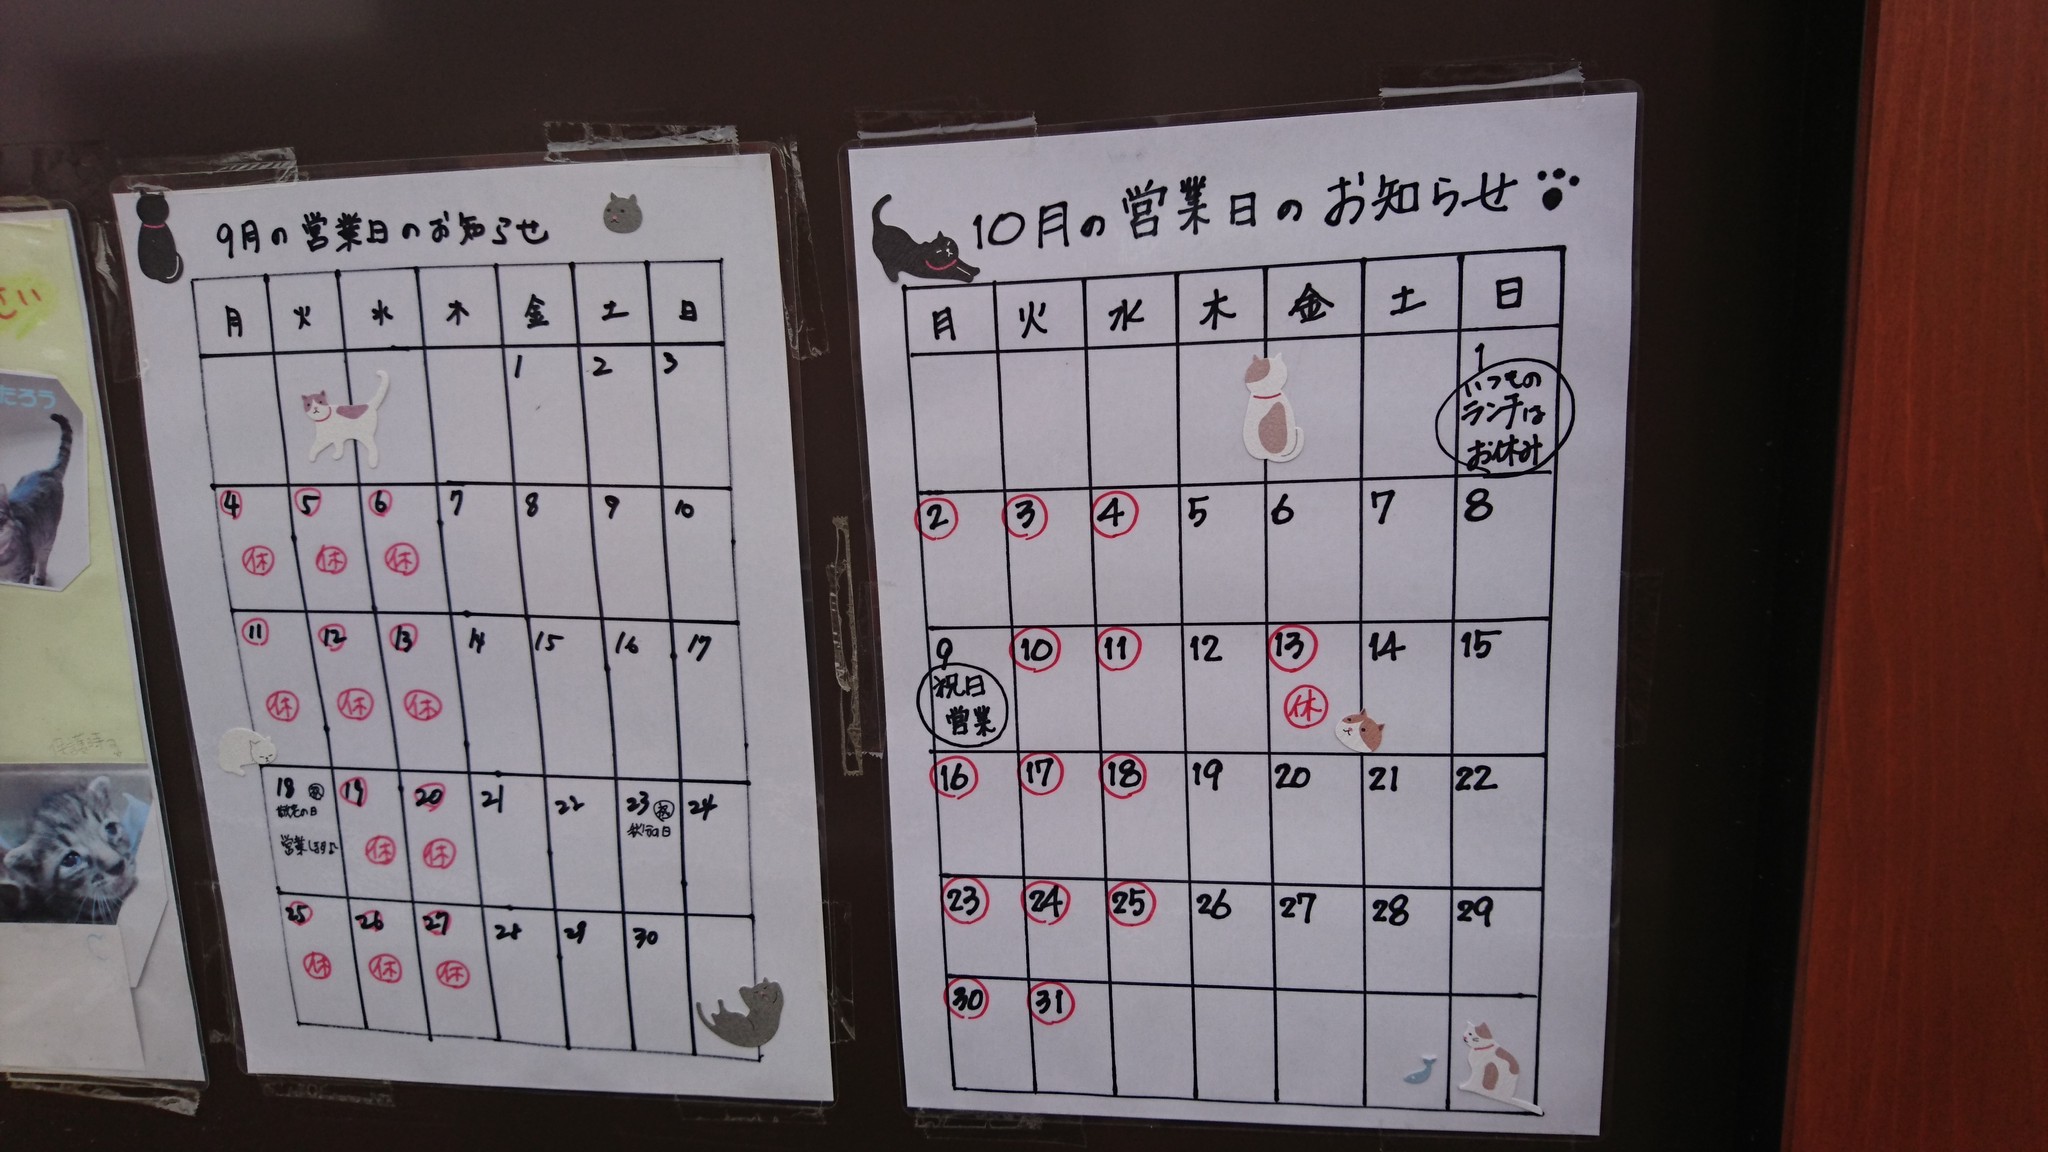 さい
たろう
9月の営業日のお知らせ
月 火 水 木 金 土 日
1 2 3
4 5 6 7 8 9 10
休 休 休
11 12 13 14 15 16 17
休 休 休
18 祝 19 20 21 22 23 祝 24
敬老の日 秋分の日
営業します♪ 休 休
25 26 27 28 29 30
休 休 休
10月の営業日のお知らせ
月 火 水 木 金 土 日
1
いつもの
ランチは
お休み
2 3 4 5 6 7 8
9 10 11 12 13 14 15
祝日
営業
休
16 17 18 19 20 21 22
23 24 25 26 27 28 29
30 31